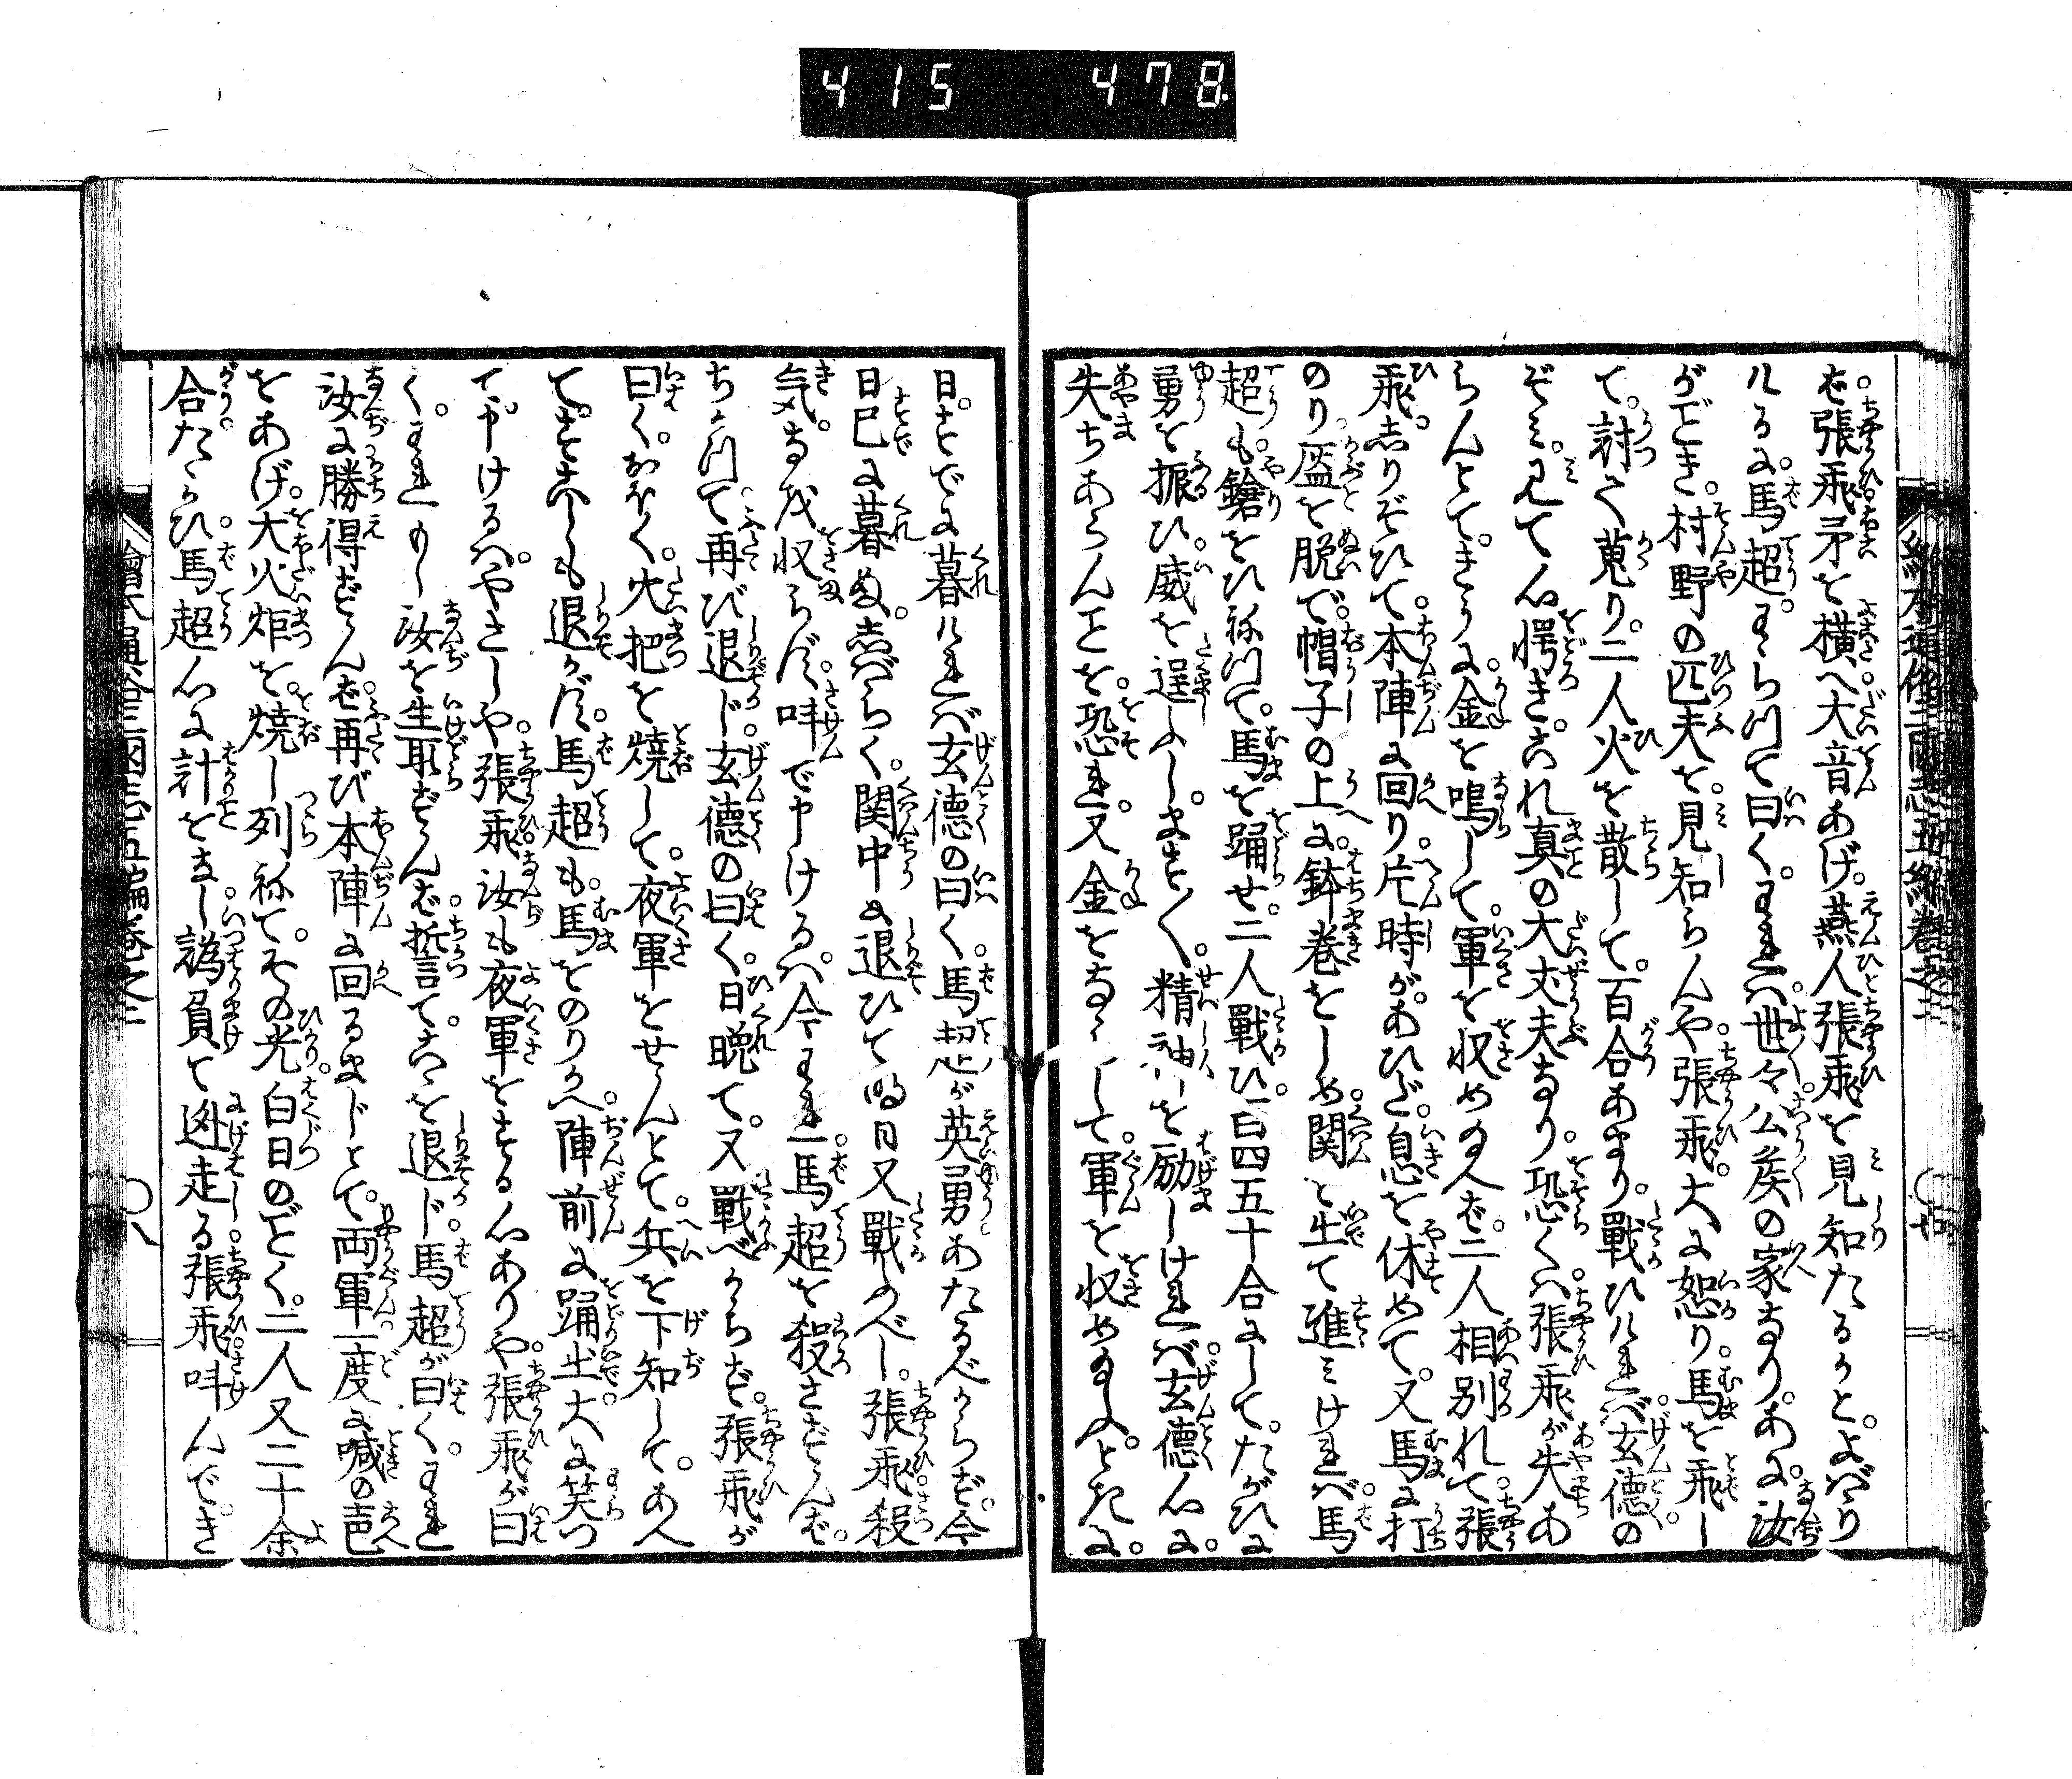 415 478
ば張飛矛を横へ大音あげ。燕人張飛を見知たるかと。よばゝり
ければ。馬超。わらつて曰く。われハ世々公侯の家なり。あに。汝
がごとき。村野の匹夫を。見知らんや。張飛。大に怒り。馬を飛し
て。討て蒐り。二人火を散して。一百合あまり。戦ひければ玄徳の
ぞミ。見て心愕き。これ真の大丈夫なり。恐くハ。張飛が失あ
らんとて。きうに。金を鳴して。軍を収め給へば。二人相別れて。張
飛。しりぞひて。本陣に回り。片時が。あひだ。息を休めて。又馬に打
のり。盔を脱で。帽子の上に。鉢巻をしめ。関を出て進ミければ馬
超も。鎗をひねつて。馬を踊せ。二人戦ひ。百四五十合にして。たがひに
勇を振ひ。威を逞ふし。ます〱。精神を励しければ。玄徳心に。
失ちあらんことを。恐れ。又金をならして。軍を収め給ふ。ときに。
日。すでに暮ければ玄徳の曰く。馬超が英勇あたるべからず。今
日已に暮ぬ。しばらく。関中に退ひて明日又戦ふべし。張飛。殺
気。なを収らず。叫で申けるハ。今われ。馬超を殺さずんば。
ちかつて再び退じ。玄徳の曰く。日晩て。又戦べからず。張飛が
曰く。おほく。火把を焼して。夜軍をせんとて。兵を下知して。あへ
て。すこしも退かず。馬超も。馬をのりかへ。陣前に踊出。大に笑つ
て申けるハ。やさしや。張飛。汝も夜軍をする心ありや。張飛が曰
く。われもし汝を生取ずんば。誓て。こゝを退ド。馬超が曰く。われ
汝に勝得ずんば。再び本陣に回るまじとて。両軍一度に喊の声
をあげ。大火炬を。焼し列ねて。その光。白日のごとく。二人又二十余
合たゝかひ。馬超心に計をなし。偽負て迯走る。張飛。叫んで。き
繪本通俗三國志五編巻之三